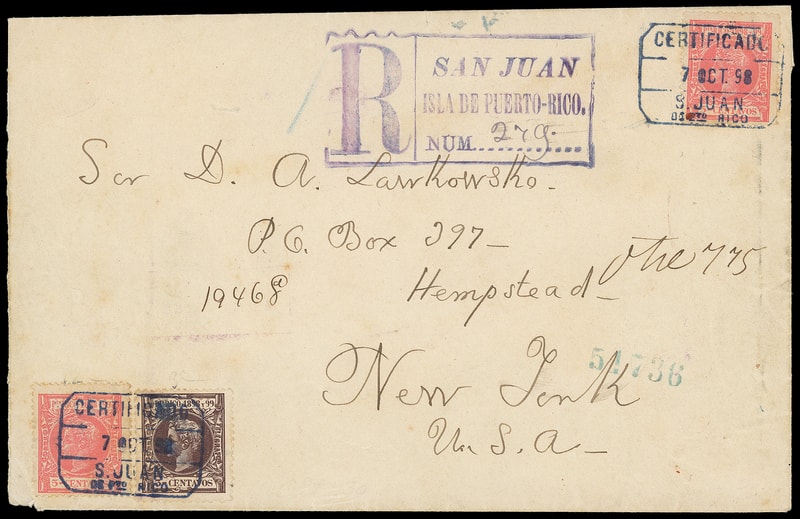 R
SAN JUAN
ISLA DE PUERTO-RICO.
NUM. 279
CERTIFICADO
7 OCT. 98
S. JUAN
DE PTO RICO
AVOS
Sor D. A. Lawkowsko.
P. O. Box 397—
19468
Hempstead—
775
New York
U. S. A—
51736
CERTIFICADO
7 OCT 98
S. JUAN
DE PTO RICO
5 CENT
1898-99
CENTAVOS